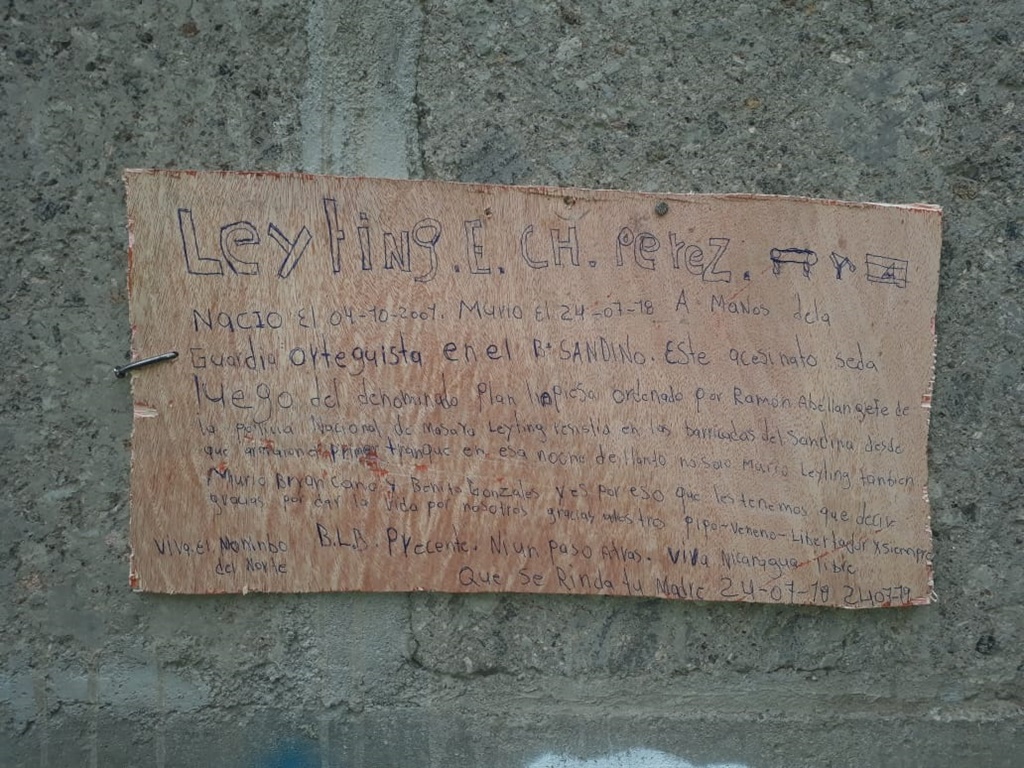 Leyting. E. CH. Perez.
Nacio El 04-10-2001. Murio El 24-07-18 A Manos dela
Guardia orteguista en el B° SANDINO. Este acesinato seda
luego del denominado Plan lispiesa ordenado por Ramón Abellan gefe de
la policia Nacional de Masaya Leyting resistia en las barricadas del Sandina desde
que armaron el primer tranque en esa noche de llanto no solo Murio Leyting tanbien
Murio Bryan Cano y Benito Gonzales y es por eso que les tenemos que decir
gracias por dar la vida por nosotros gracias nuestro pipo-veneno-Libertador xsiempre
Viva.El Moninbo B.L.B. Precente. Ni un Paso Atras. Viva Nicaragua libre
del Norte Que Se Rinda tu Madre 24-07-18 240719